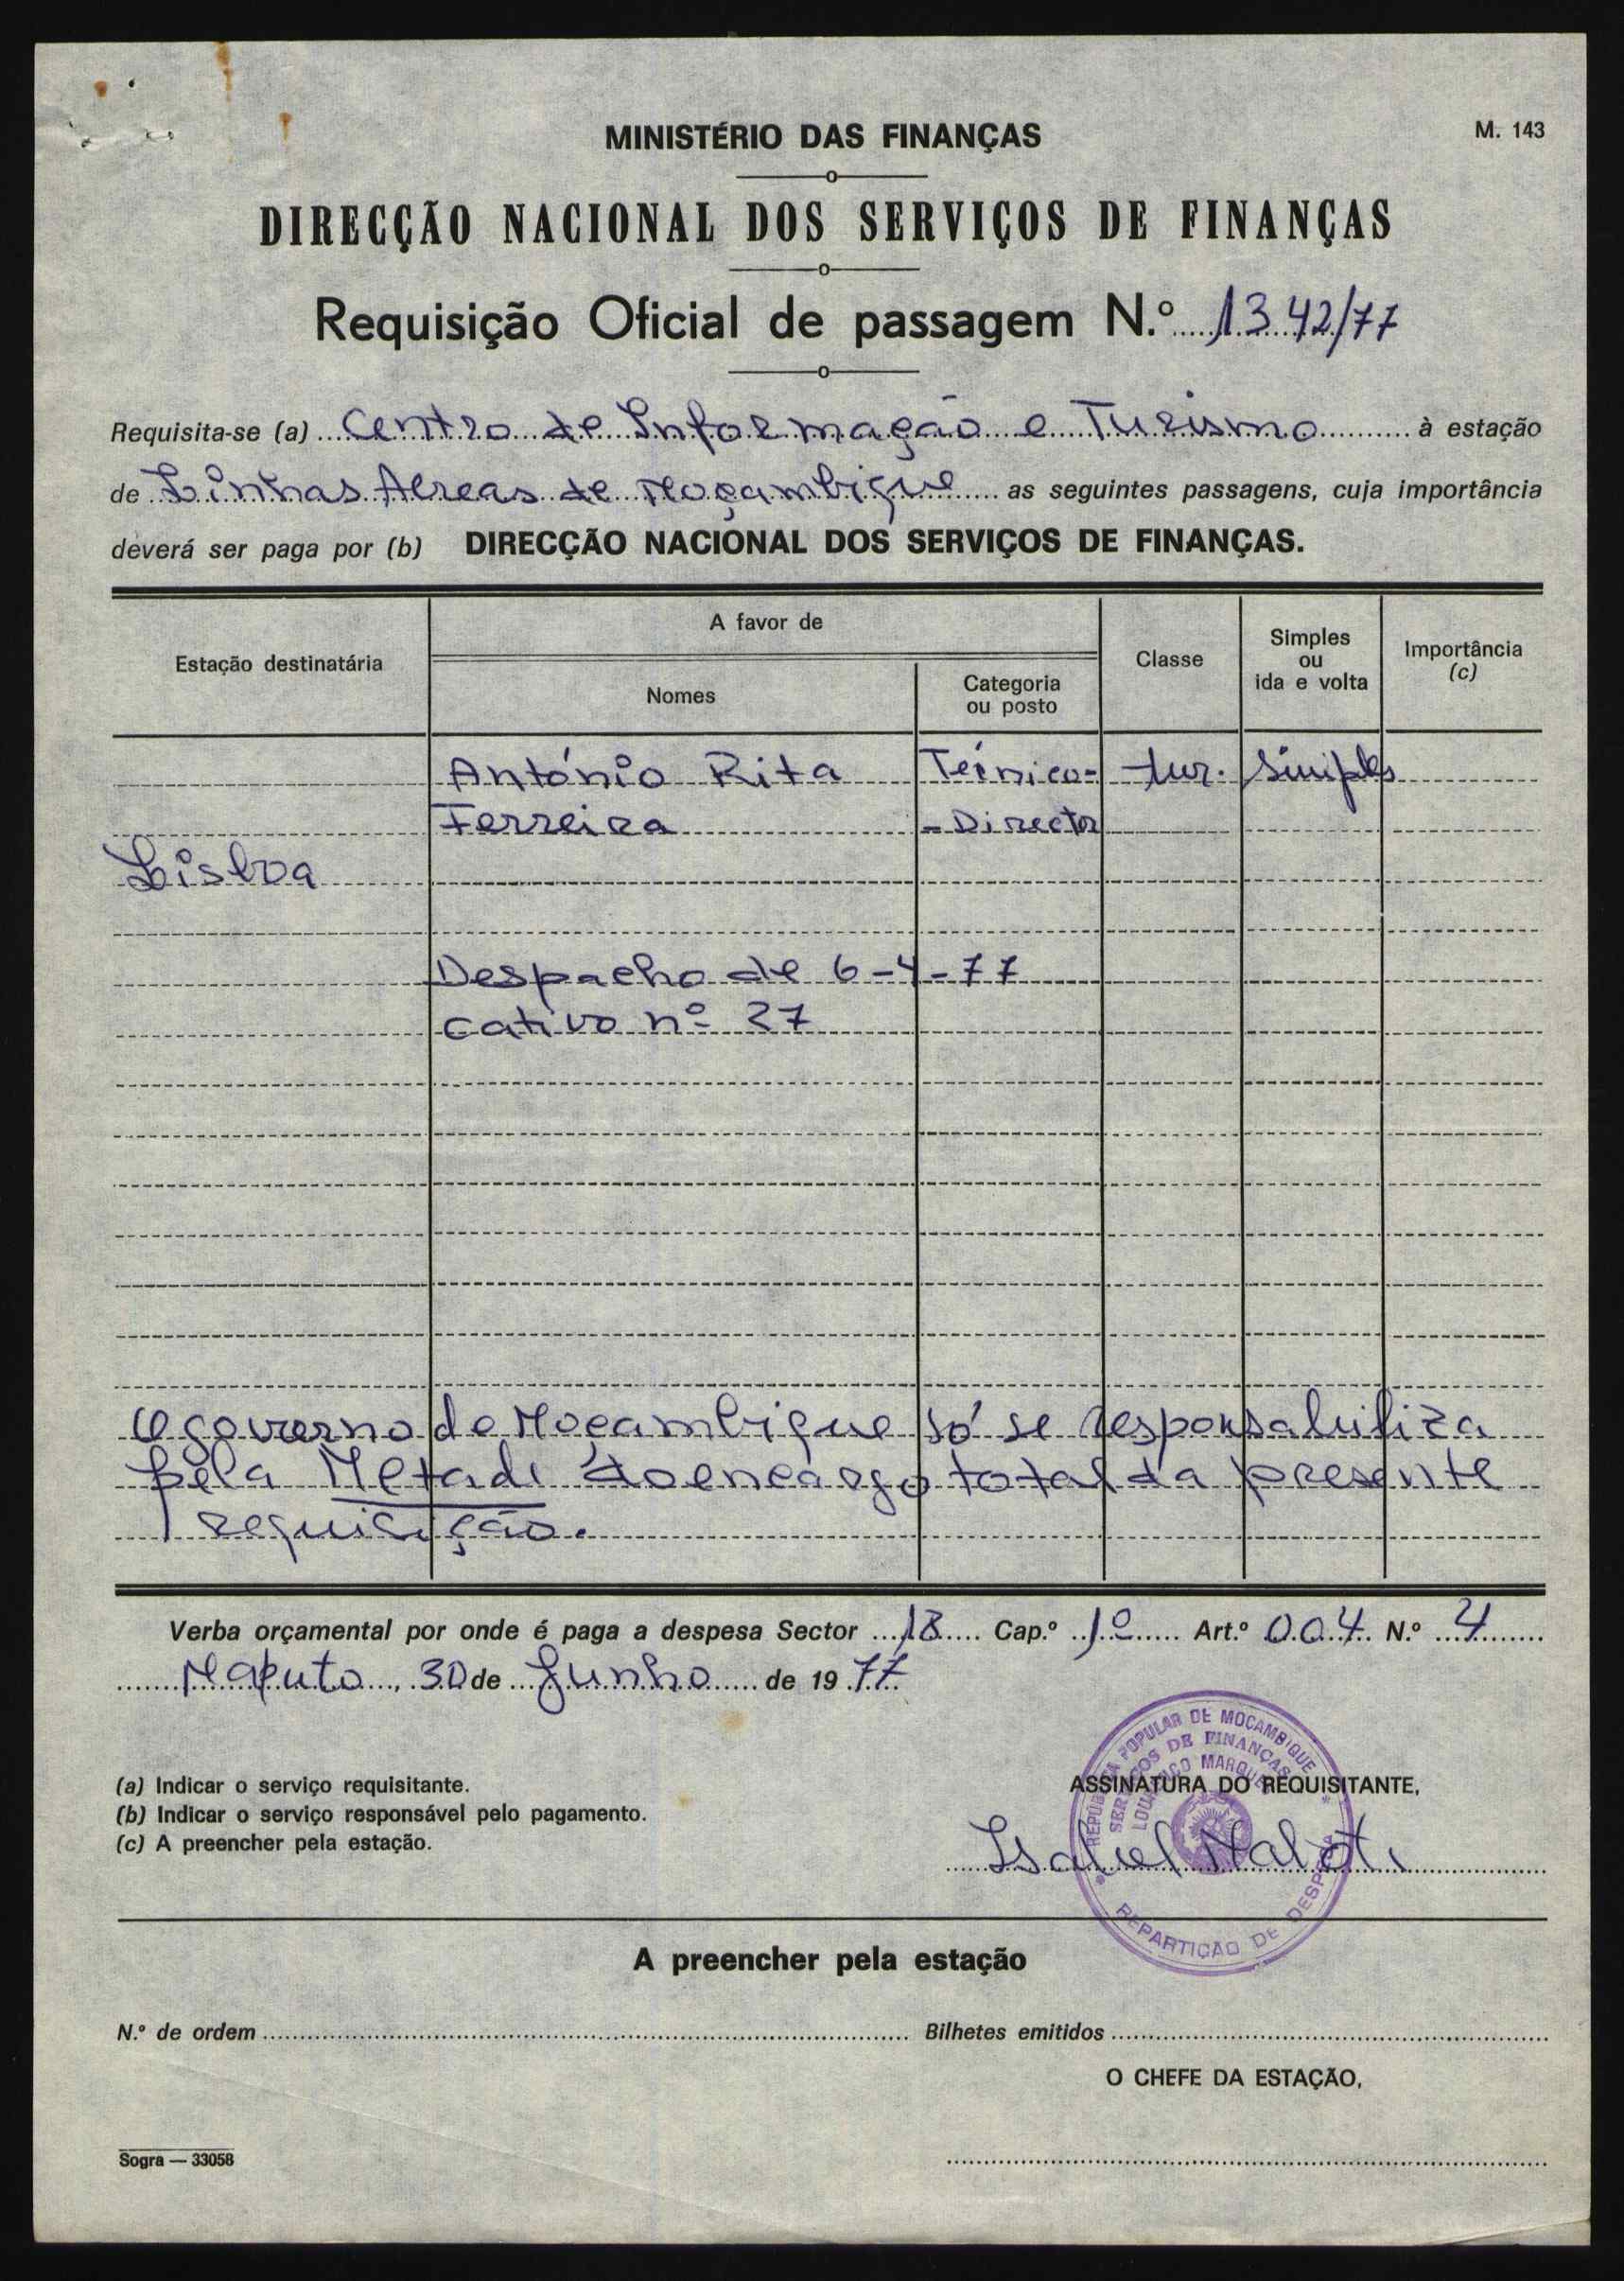 MINISTÉRIO DAS FINANÇAS
M. 143
DIRECÇÃO NACIONAL DOS SERVIÇOS DE FINANÇAS
Requisição Oficial de passagem N.º 1342/77
Requisita-se (a) Centro de Informação e Turismo à estação
de Linhas Aéreas de Moçambique as seguintes passagens, cuja importância
deverá ser paga por (b) DIRECÇÃO NACIONAL DOS SERVIÇOS DE FINANÇAS.
Estação destinatária
A favor de
Nomes
Categoria
ou posto
Classe
Simples
ou
ida e volta
Importância
(c)
António Rita Técnico- tur. Simples
Ferreira - Director
Lisboa
Despacho de 6-4-77
cativo nº 27
O governo de Moçambique só se responsabiliza
pela Metade do encargo total da presente
requisição.
Verba orçamental por onde é paga a despesa Sector 18 Cap.º 1º Art.º 004 N.º 4
Maputo, 30 de Junho de 1977
(a) Indicar o serviço requisitante.
(b) Indicar o serviço responsável pelo pagamento.
(c) A preencher pela estação.
REPÚBLICA POPULAR DE MOÇAMBIQUE
SERVIÇOS DE FINANÇAS
LOURENÇO MARQUES
REPARTIÇÃO DE DESPESA
ASSINATURA DO REQUISITANTE,
Isabel
A preencher pela estação
N.º de ordem
Bilhetes emitidos
O CHEFE DA ESTAÇÃO,
Sogra — 33058